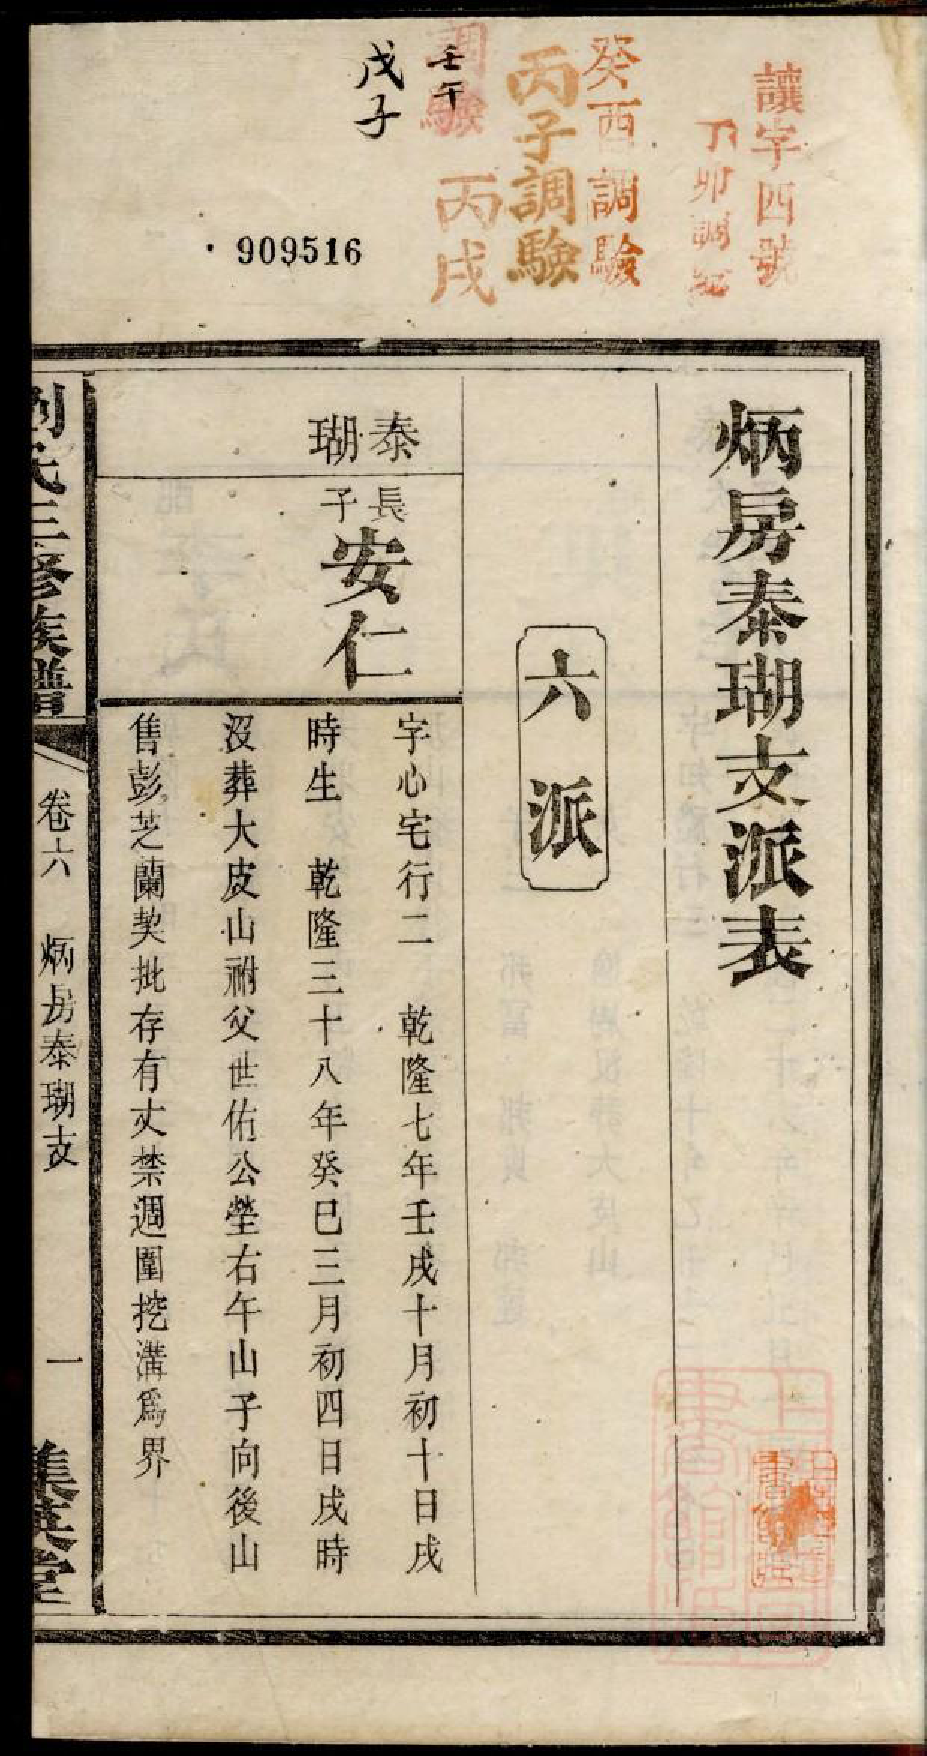 讓字四號
丁卯調驗
癸酉調驗
丙子調驗
調驗
丙戌
壬午
戊子
909516
炳房泰瑚支派表
六派
泰瑚
長子
安仁
字心宅行二 乾隆七年壬戌十月初十日戌
時生 乾隆三十八年癸巳三月初四日戌時
沒葬大皮山祔父世佑公塋右午山子向後山
售彭芝蘭契批存有丈禁週圍挖溝爲界
劉氏三修族譜
卷六 炳房泰瑚支
一
集英堂